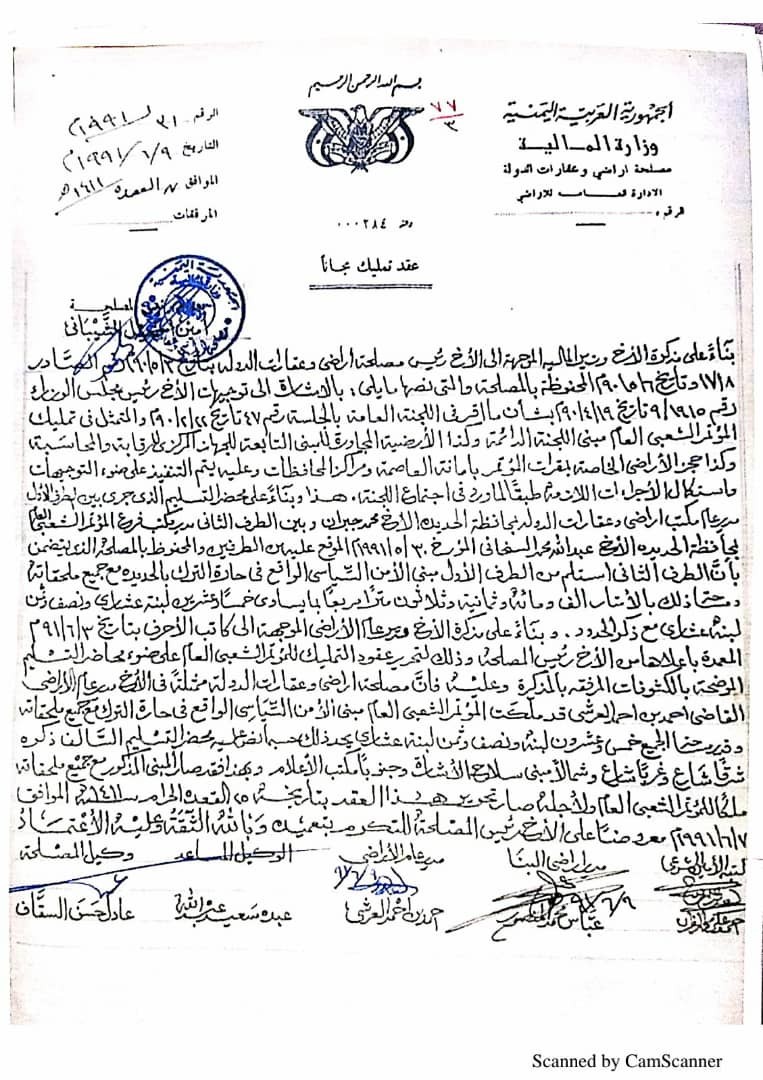 بسم الله الرحمن الرحيم
الجمهورية العربية اليمنية
وزارة المالية
مصلحة اراضي وعقارات الدولة
الادارة العامة للاراضي
الرقم
الرقم ٣١ / ١٩٩١م
التاريخ ٩/٦/١٩٩١م
الموافق ٢٧ القعده ١٤١١هـ
المرفقات
٧٧
٣
٠٠٠٢٨٤
عقد تمليك مجاناً
بناءً على مذكرة الأخ وزير الماليه الموجهة الى الأخ رئيس مصلحة اراضي وعقارات الدوله بتاريخ الصادر
١٧١٨ وتاريخ ٦/٥/٩٠م المحفوظة بالمصلحة والتي نصها مايلي: بالاشارة الى توجيهات الأخ رئيس مجلس الوزراء
رقم ٩/١٩١٥ تاريخ ١٩/٤/٩٠م بشأن ما اقر في اللجنة العامة بالجلسة رقم ٤٧ تاريخ ٢٢/٢/٩٠م والمتمثل في تمليك
المؤتمر الشعبي العام مبنى اللجنة الدائمة وكذا الأرضية المجاورة للمبنى التابعة للجهاز المركزي للرقابة والمحاسبة
وكذا حجز الأراضي الخاصة بمقرات المؤتمر بامانة العاصمة ومراكز المحافظات وعليه يتم التنفيذ على ضوء التوجيهات
واستكمال الأجراءات اللازمة طبقاً لما ورد في اجتماع اللجنة. هذا وبناءً على محضر التسليم الذي جرى بين الطرف الأول
مدير عام مكتب اراضي وعقارات الدوله بمحافظة الحديده الأخ محمد جبران وبين الطرف الثاني مدير مكتب فرع المؤتمر الشعبي العام
بمحافظة الحديده الأخ عبدالله محمد المؤرخ ٣٠/٥/١٩٩١م الموقع عليه من الطرفين والمحفوظ بالمصلحة الذي يتضمن
بأن الطرف الثاني استلم من الطرف الأول مبنى الأمن السياسي الواقع في حارة الترك بالحديده مع جميع ملحقاته
ومساحة ذلك بالأمتار الف ومائة وثمانية وثلاثون متراً مربعاً بما يساوي خمساً وعشرين لبنة عشاري ونصف وثمن
لبنة عشاري مع ذكر الحدود. وبناءً على مذكرة الأخ مدير عام الأراضي الموجهة الى كاتب الأحرف بتاريخ ٣/٦/٩١م
المعمدة باعلاها من الأخ رئيس المصلحة وذلك لتحرير عقود التمليك للمؤتمر الشعبي العام على ضوء محاضر التسليم
الموضحة بالكشوفات المرفقه بالمذكرة وعليه فان مصلحة اراضي وعقارات الدولة ممثلة في الأخ مدير عام الأراضي
القاضي احمد بن احمد العرشي قد ملكت المؤتمر الشعبي العام مبنى الأمن السياسي الواقع في حارة الترك مع جميع ملحقاته
وقدر مساحة الجميع خمس وعشرون لبنة ونصف وثمن لبنة عشاري يحد ذلك حسبما نص عليه محضر التسليم السالف ذكره
شرقاً شارع وغرباً شارع وشمالاً مبنى سلاح الأشارة وجنوباً مكتب الأعلام وبهذا فقد صار المبنى المذكور مع جميع ملحقاته
ملكاً للمؤتمر الشعبي العام ولأجله صار تحرير هذا العقد بتاريخه ٢٥ القعده الحرام سنة ١٤١١هـ الموافق
٧/٦/١٩٩١م معروضاً على الأخ رئيس المصلحة للتكرم بتعميده وبالله الثقة وعليه الأعتماد
مدير اراضي البنا مدير عام الأراضي الوكيل المساعد وكيل المصلحة
٩/٦/٩١
عباس محمد احمد بن احمد العرشي عبده سعيد عبدالله عادل حسن السقاف
Scanned by CamScanner